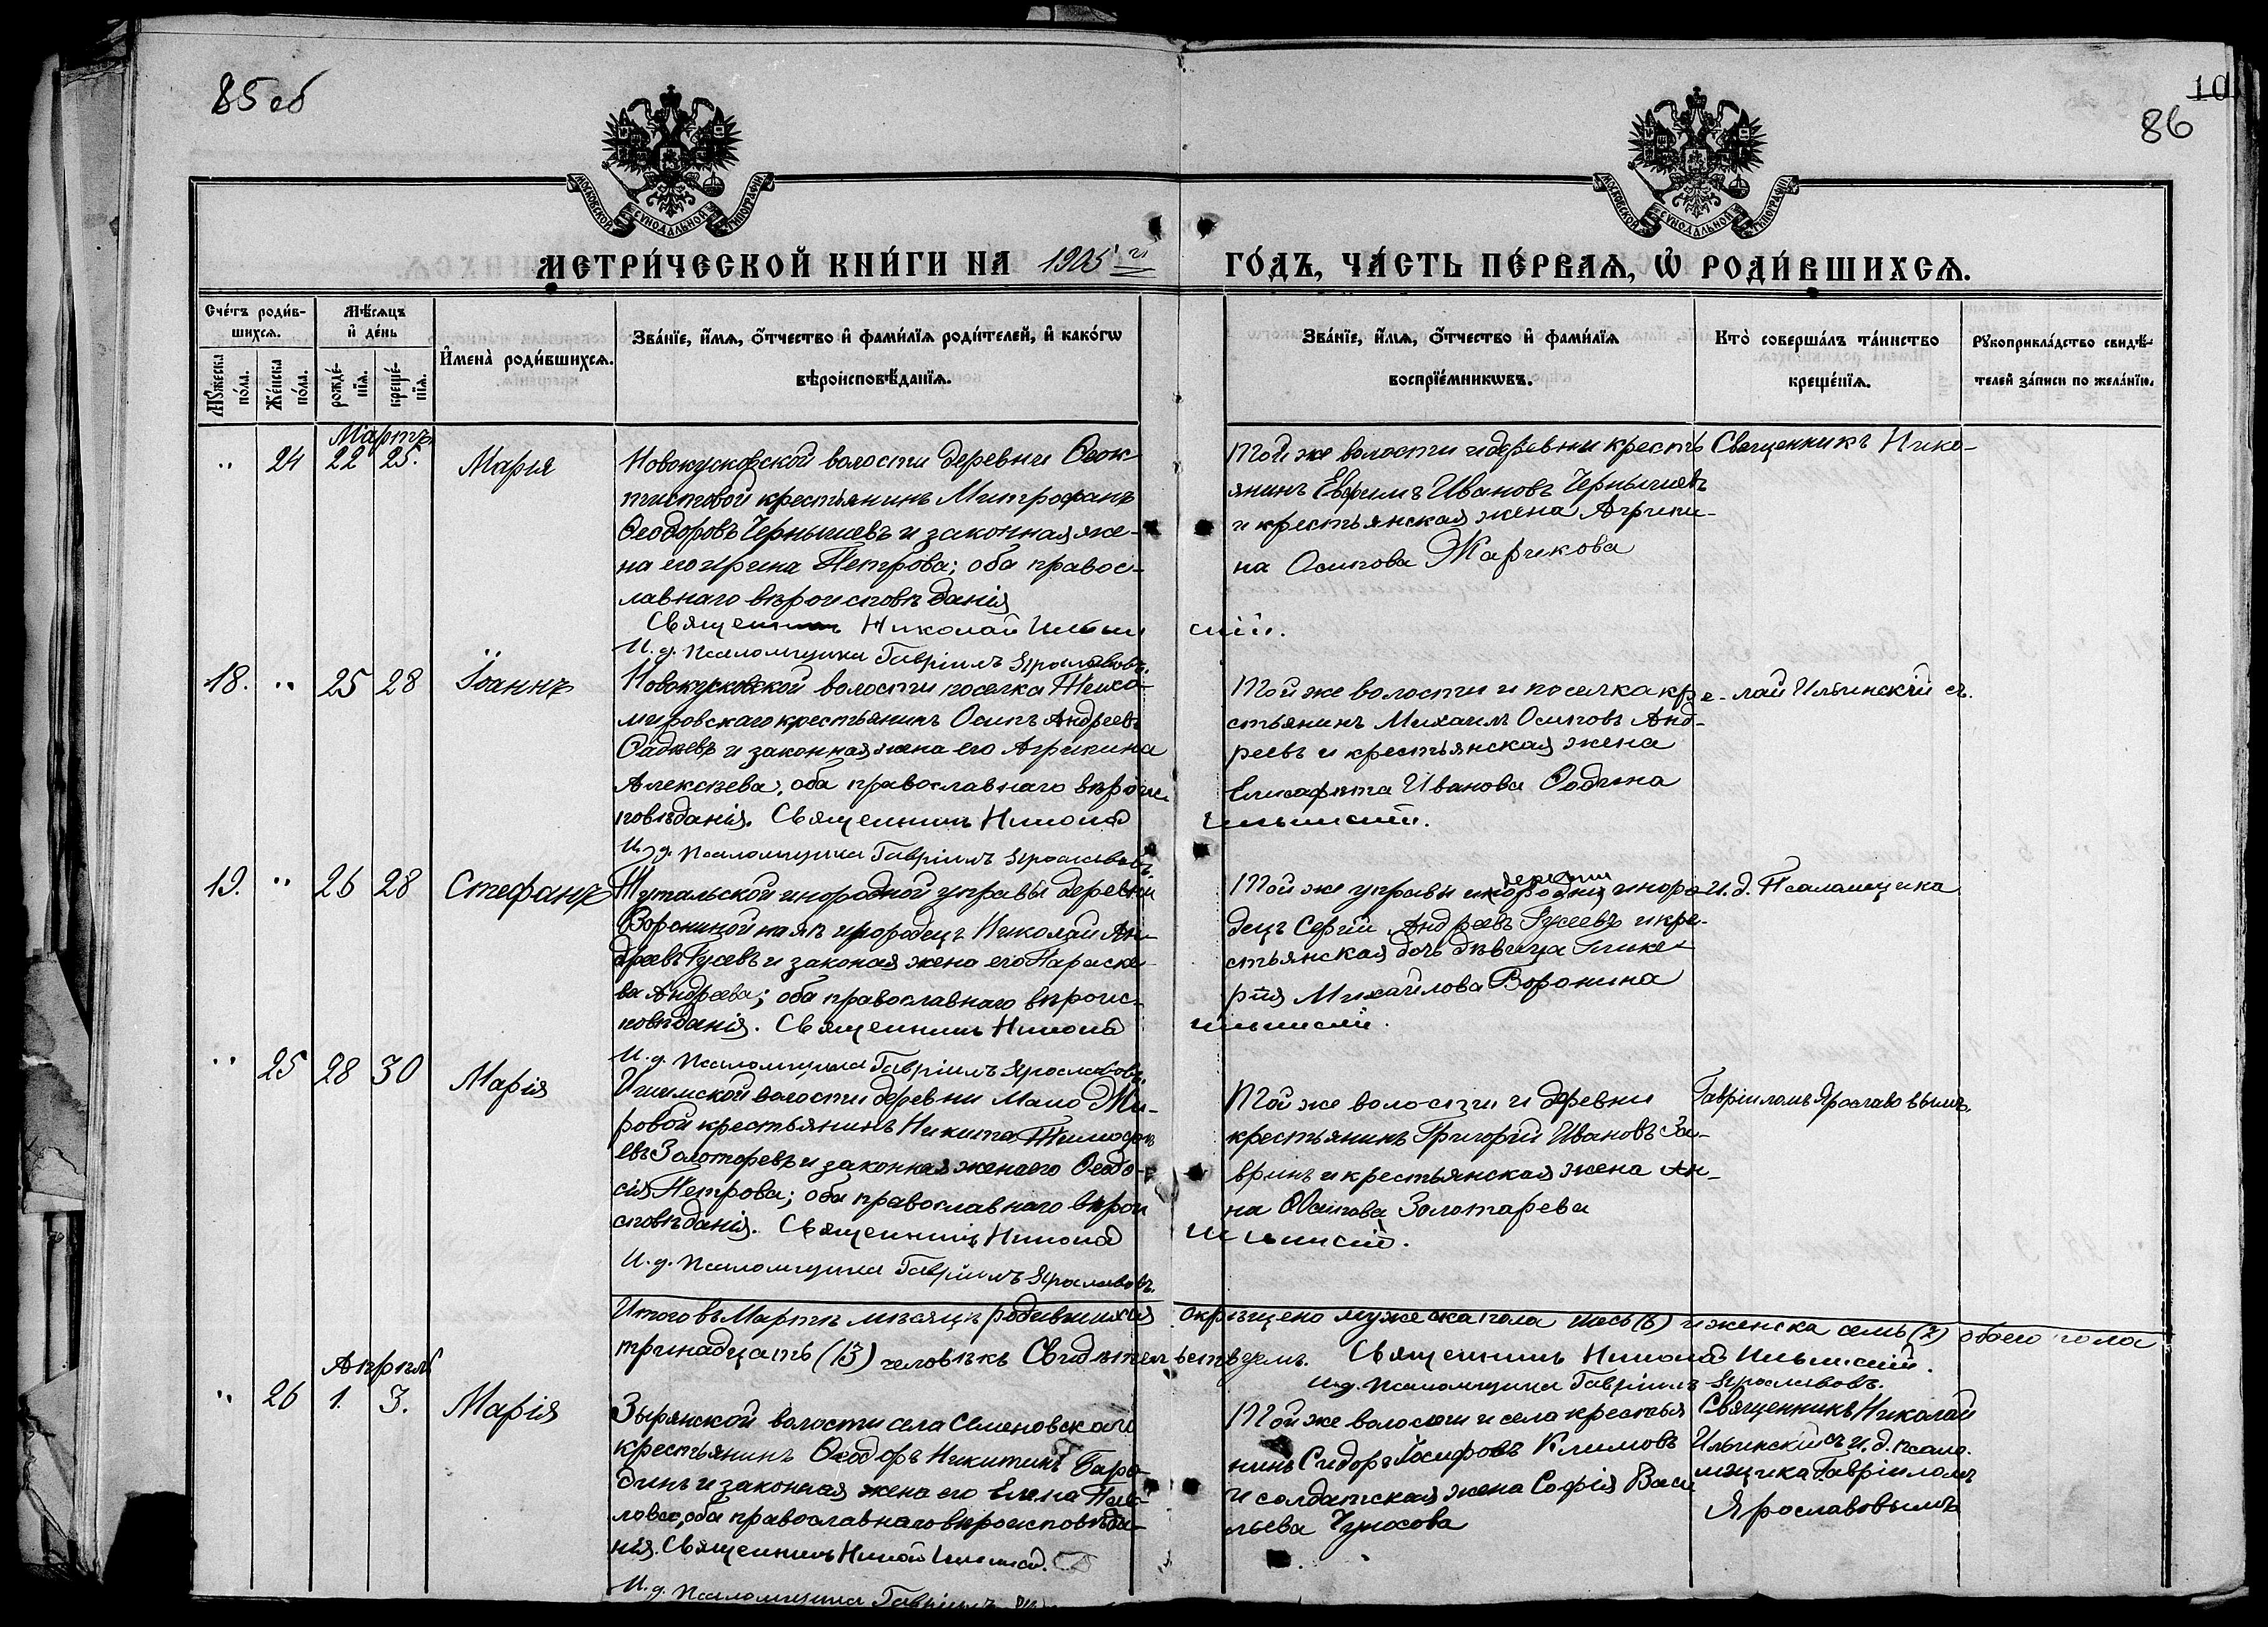 85 об
10
86
МОСКОВСКОЙ СѴНОДАЛЬНОЙ ТИПОГРАФІИ
МОСКОВСКОЙ СѴНОДАЛЬНОЙ ТИПОГРАФІИ
МЕТРИ́ЧЕСКОЙ КНИ́ГИ НА 1905 г.
ГО́ДЪ, ЧА́СТЬ ПЕ́РВАЯ, Ѡ҆ РОДИ́ВШИХСЯ.
Сче́тъ роди́в-
шихся.
Мꙋжеска по́ла.
Же́нска по́ла.
Мѣ́сяцъ
и҆ де́нь
рожде́-
нїя.
креще́-
нїя.
И҆мена̀ роди́вшихся.
Зва́нїе, и҆́мя, о҆́тчество и҆ фами́лїя роди́телей, и҆ како́гѡ
вѣроисповѣ́данїя.
Зва́нїе, и҆́мя, о҆́тчество и҆ фами́лїя
воспрїе́мникѡвъ.
Кто̀ соверша́лъ та́инство
креще́нїя.
Рꙋкоприкла́дство свидѣ́-
телей за́писи по жела́нїю.
Мартъ
" 24 22 25. Марія
Новокусковской волости деревни Ѳеок-
тистовой крестьянинъ Митрофанъ
Ѳеодоровъ Чернышевъ и законная же-
на его Ирина Петрова; оба правос-
лавнаго вѣроисповѣданія
Священникъ Николай Ильин
скій.
И. д. псаломщика Гавріилъ Ярославовъ.
Той же волости и деревни кресть
янинъ Евфимъ Ивановъ Чернышевъ
и крестьянская жена Агрипи-
на Осипова Жарикова
Священникъ Нико-
18. " 25 28 Іоаннъ
Новокусковской волости поселка Тихо-
мировскаго крестьянинъ Осипъ Андреевъ
и законная жена его Агрипина
Алексѣева; оба православнаго вѣроис
повѣданія. Священникъ Николай
Ильинскій.
И. д. псаломщика Гавріилъ Ярославовъ.
Той же волости и поселка кре-
стьянинъ Михаилъ Осиповъ Анд-
реевъ и крестьянская жена
Елисафета Иванова
лай Ильинскій съ
19. " 26 28 Стефанъ
Тутальской инородной управы деревни
Ворониной инородецъ Николай Ан-
дреевъ Гусевъ и законая жена его Параске-
ва Андреева; оба православнаго вѣроис-
повѣданія. Священникъ Николай
Ильинскій.
И. д. псаломщика Гавріилъ Ярославовъ.
деревни
Той же управы инородни иноро
децъ Сергій Андреевъ Гусевъ и кре-
стьянская дочь дѣвица Глике-
рія Михайлова Воронина
и. д. Псаломщика
" 25 28 30 Марія
Ишимской волости деревни Мало Жи-
ровой крестьянинъ Никита Тимофѣ
евъ Золоторевъ и законная жена его Ѳеодо-
сія Петрова; оба православнаго вѣрои
сповѣданія. Священникъ Николай
Ильинскій.
И. д. псаломщика Гавріилъ Ярославовъ.
Той же волости и деревни
крестьянинъ Григорій Ивановъ За-
вринъ и крестьянская жена Ан-
на Осипова Золотарева
Гавріиломъ Ярославовымъ.
Итого въ Мартѣ мѣсяцѣ родившихся окрещено мужеска пола шесь (6) и женска семь (7) обоего пола
тринадцать (13) человѣкъ Свидѣтельствуемъ. Священникъ Николай Ильинскій.
И. д. псаломщика Гавріилъ Ярославовъ.
Апрѣль
" 26 1. 3. Марія
Зырянской волости села Семеновскаго
крестьянинъ Ѳеодоръ Никитинъ Боро-
динъ и законная жена его Елена Пав-
лова, оба православнаго вѣроисповѣда-
нія. Священникъ Николай Ильинскій.
И. д. псаломщика Гавріилъ
Той же волости и села крестья
нинъ Сидоръ Іосифовъ Климовъ
и солдатская жена Софія Васи
льева
Священникъ Николай
Ильинскій съ и. д. псало-
мщика Гавріиломъ
Ярославовымъ